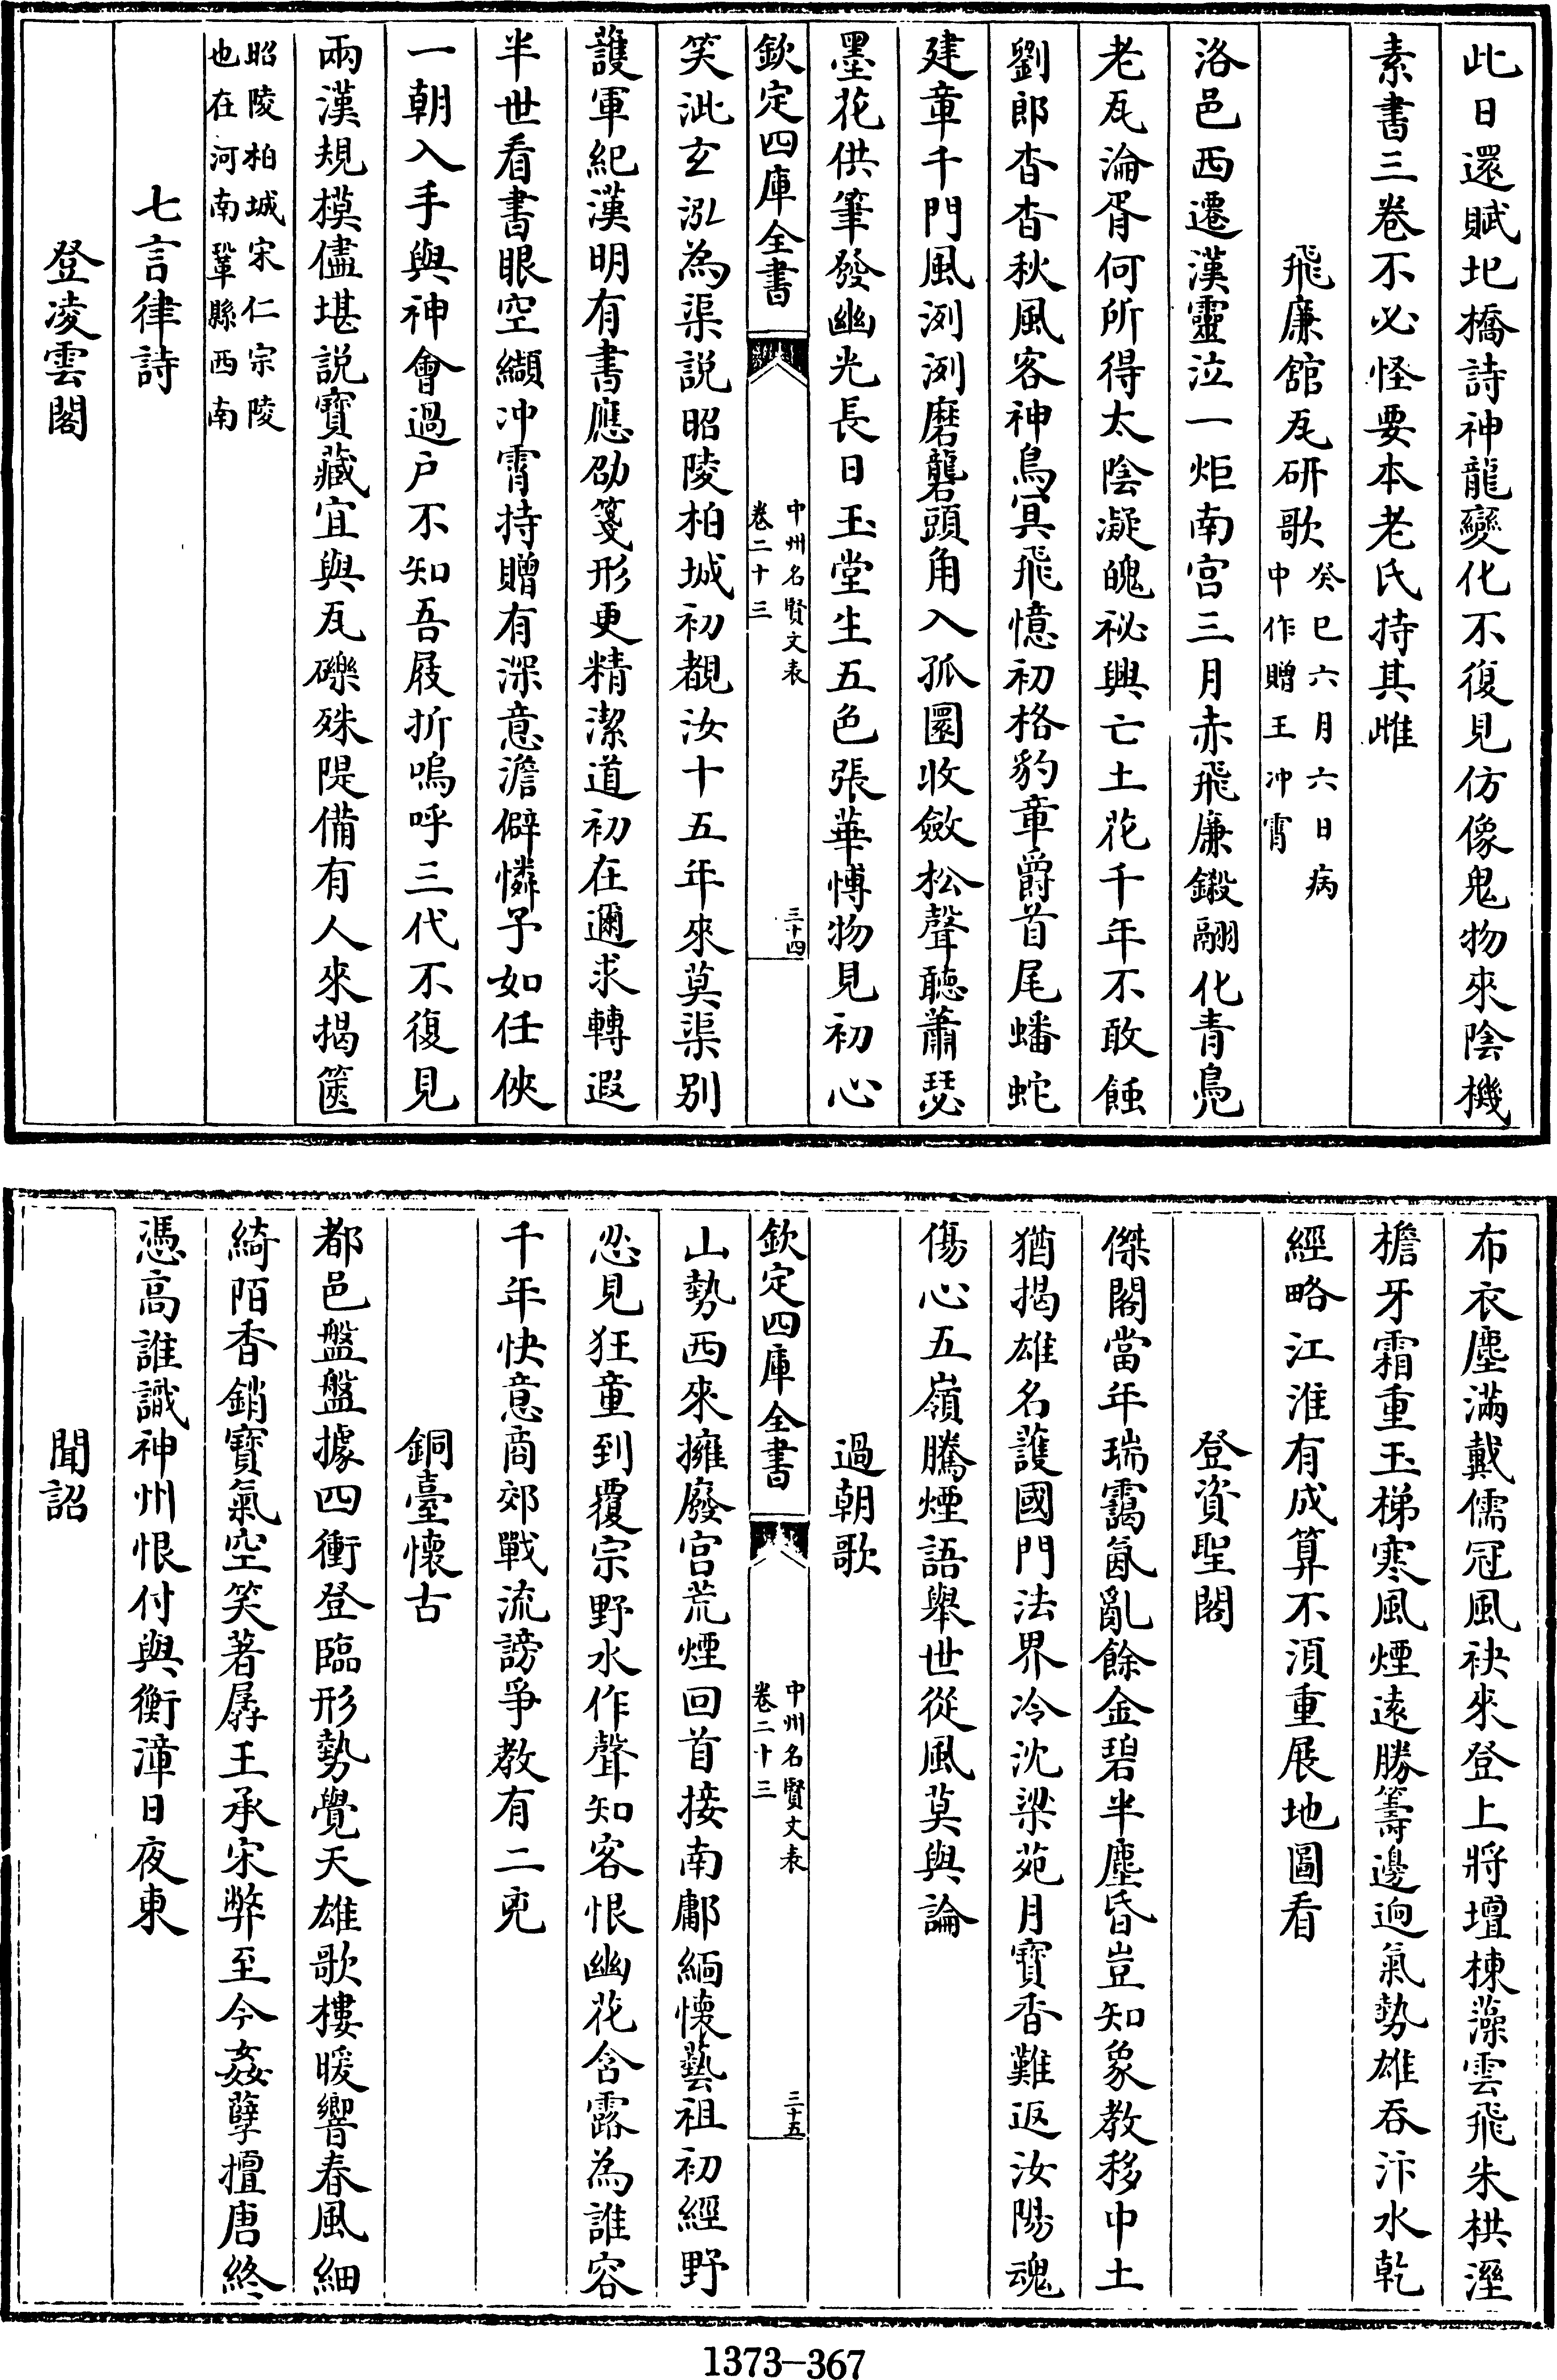 此日還賦圯橋詩神龍變化不復見仿像鬼物來陰機
素書三卷不必怪要本老氏持其雌
飛廉館瓦研歌癸巳六月六日病
中作贈王冲霄
洛邑西遷漢靈泣一炬南宫三月赤飛廉鍛翮化青鳬
老瓦淪胥何所得太陰凝魄祕興亡土花千年不敢蝕
劉郎杳杳秋風客神鳥冥飛憶初格豹章爵首尾蟠蛇
建章千門風洌洌磨礱頭角入孤圜收斂松聲聽蕭瑟
墨花供筆發幽光長日玉堂生五色張華愽物見初心
欽定四庫全書
中州名賢文表
卷二十三
三十四
笑泚玄泓為渠説昭陵柏城初覩汝十五年來莫渠别
護軍紀漢明有書應劭箋形更精潔道初在邇求轉遐
半世看書眼空纈冲霄持贈有深意澹僻憐予如任俠
一朝入手與神會過户不知吾屐折嗚呼三代不復見
兩漢規模儘堪説寶藏宜與瓦礫殊隄備有人來揭篋
昭陵柏城宋仁宗陵
也在河南鞏縣西南
七言律詩
登凌雲閣
布衣塵滿戴儒冠風袂來登上將壇棟藻雲飛朱栱溼
檐牙霜重玉梯寒風煙逺勝籌邊逈氣勢雄吞汴水乾
經略江淮有成算不須重展地圖看
登資聖閣
傑閣當年瑞靄氤亂餘金碧半塵昏豈知象教移中土
猶揭雄名護國門法界冷沈梁苑月寳香難返汝陽魂
傷心五嶺騰煙語舉世從風莫與論
過朝歌
欽定四庫全書
中州名賢文表
卷二十三
三十五
山勢西來擁廢宫荒煙回首接南鄘緬懐藝祖初經野
忍見狂童到覆宗野水作聲知客恨幽花含露為誰容
千年快意商郊戰流謗爭教有二兇
銅臺懷古
都邑盤盤據四衝登臨形勢覺天雄歌樓暖響春風細
綺陌香銷寶氣空笑著孱王承宋弊至今姦孽擅唐終
憑高誰識神州恨付與衡漳日夜東
聞詔
1373-367